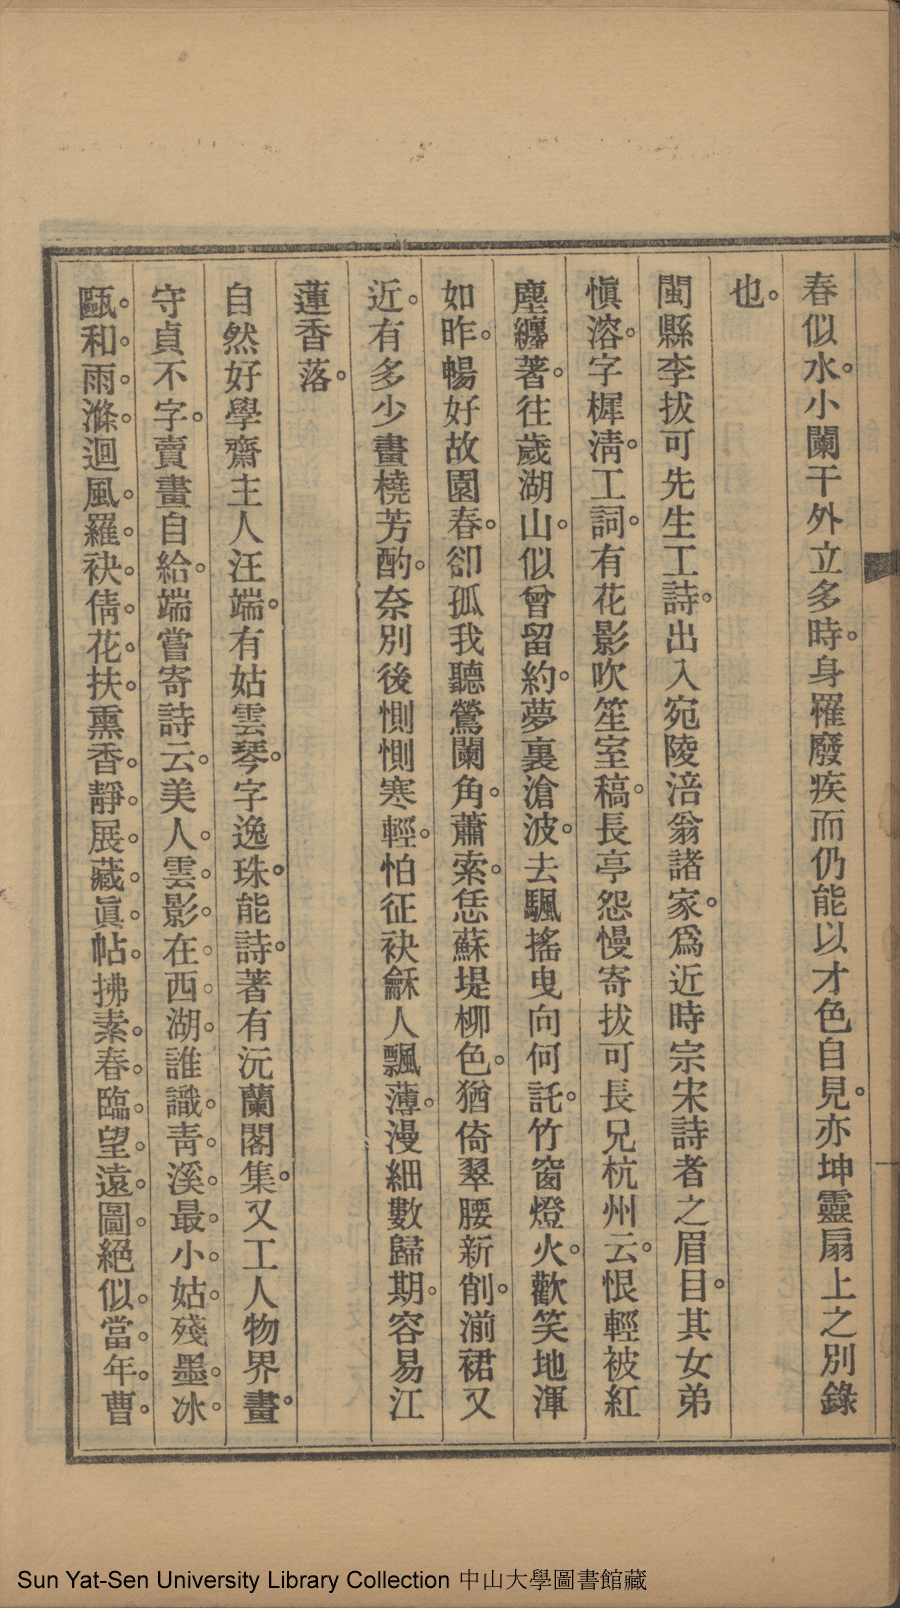 春似水。小闌干外立多時。身罹廢疾而仍能以才色自見。亦坤靈扇上之別錄
也。
閩縣李拔可先生工詩。出入宛陵涪翁諸家。爲近時宗宋詩者之眉目。其女弟
愼溶。字樨淸。工詞。有花影吹笙室稿。長亭怨慢寄拔可長兄杭州云。恨輕被紅
塵纏著。往歲湖山。似曾留約。夢裏滄波。去颿搖曳向何託。竹窗燈火。歡笑地渾
如昨。暢好故園春。卻孤我聽鶯闌角。蕭索。恁蘇堤柳色。猶倚翠腰新削。湔裙又
近。有多少畫橈芳酌。奈別後惻惻寒輕。怕征袂龢人飄薄。漫細數歸期。容易江
蓮香落。
自然好學齋主人汪端。有姑雲琴。字逸珠。能詩。著有沅蘭閣集。又工人物界畫。
守貞不字。賣畫自給。端嘗寄詩云。美人。雲。影。在。西。湖。誰識。靑。溪。最。小。姑。殘墨。冰。
甌。和。雨。滌。迴風。羅。袂。倩。花。扶。熏香。靜。展。藏。眞。帖。拂素。春。臨。望。遠。圖。絕似。當。年。曹。
Sun Yat-Sen University Library Collection 中山大學圖書館藏